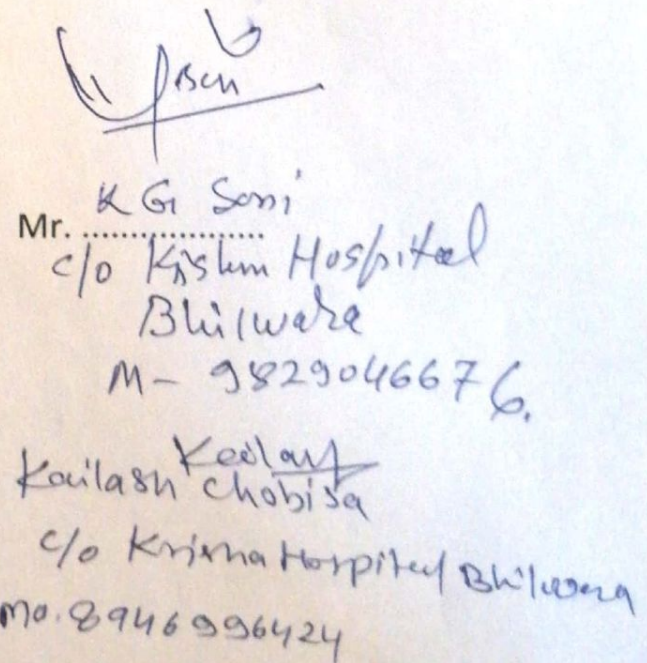 K G Soni
Mr. ..................
c/o Krishna Hospital
Bhilwara
M- 9829046676.
Kailash Chobisa
c/o Krishna Hospital Bhilwara
mo. 8946996424